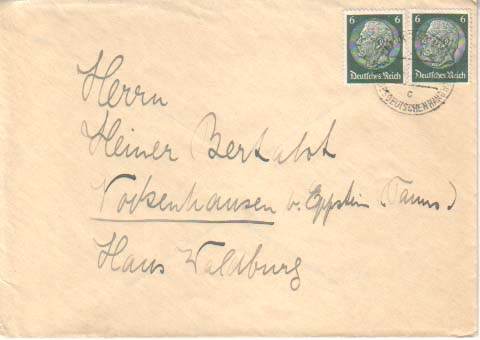 6 6
Deutsches Reich Deutsches Reich
c
Herrn
Heiner Bertalot
Vockenhausen b. Eppstein (Taunus)
Haus Waldburg